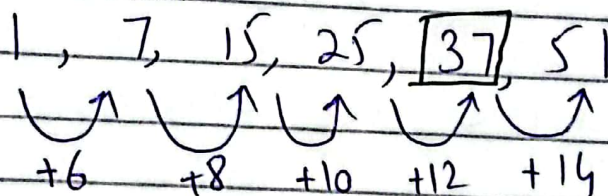 1, 7, 15, 25, 37, 51
+6 +8 +10 +12 +14